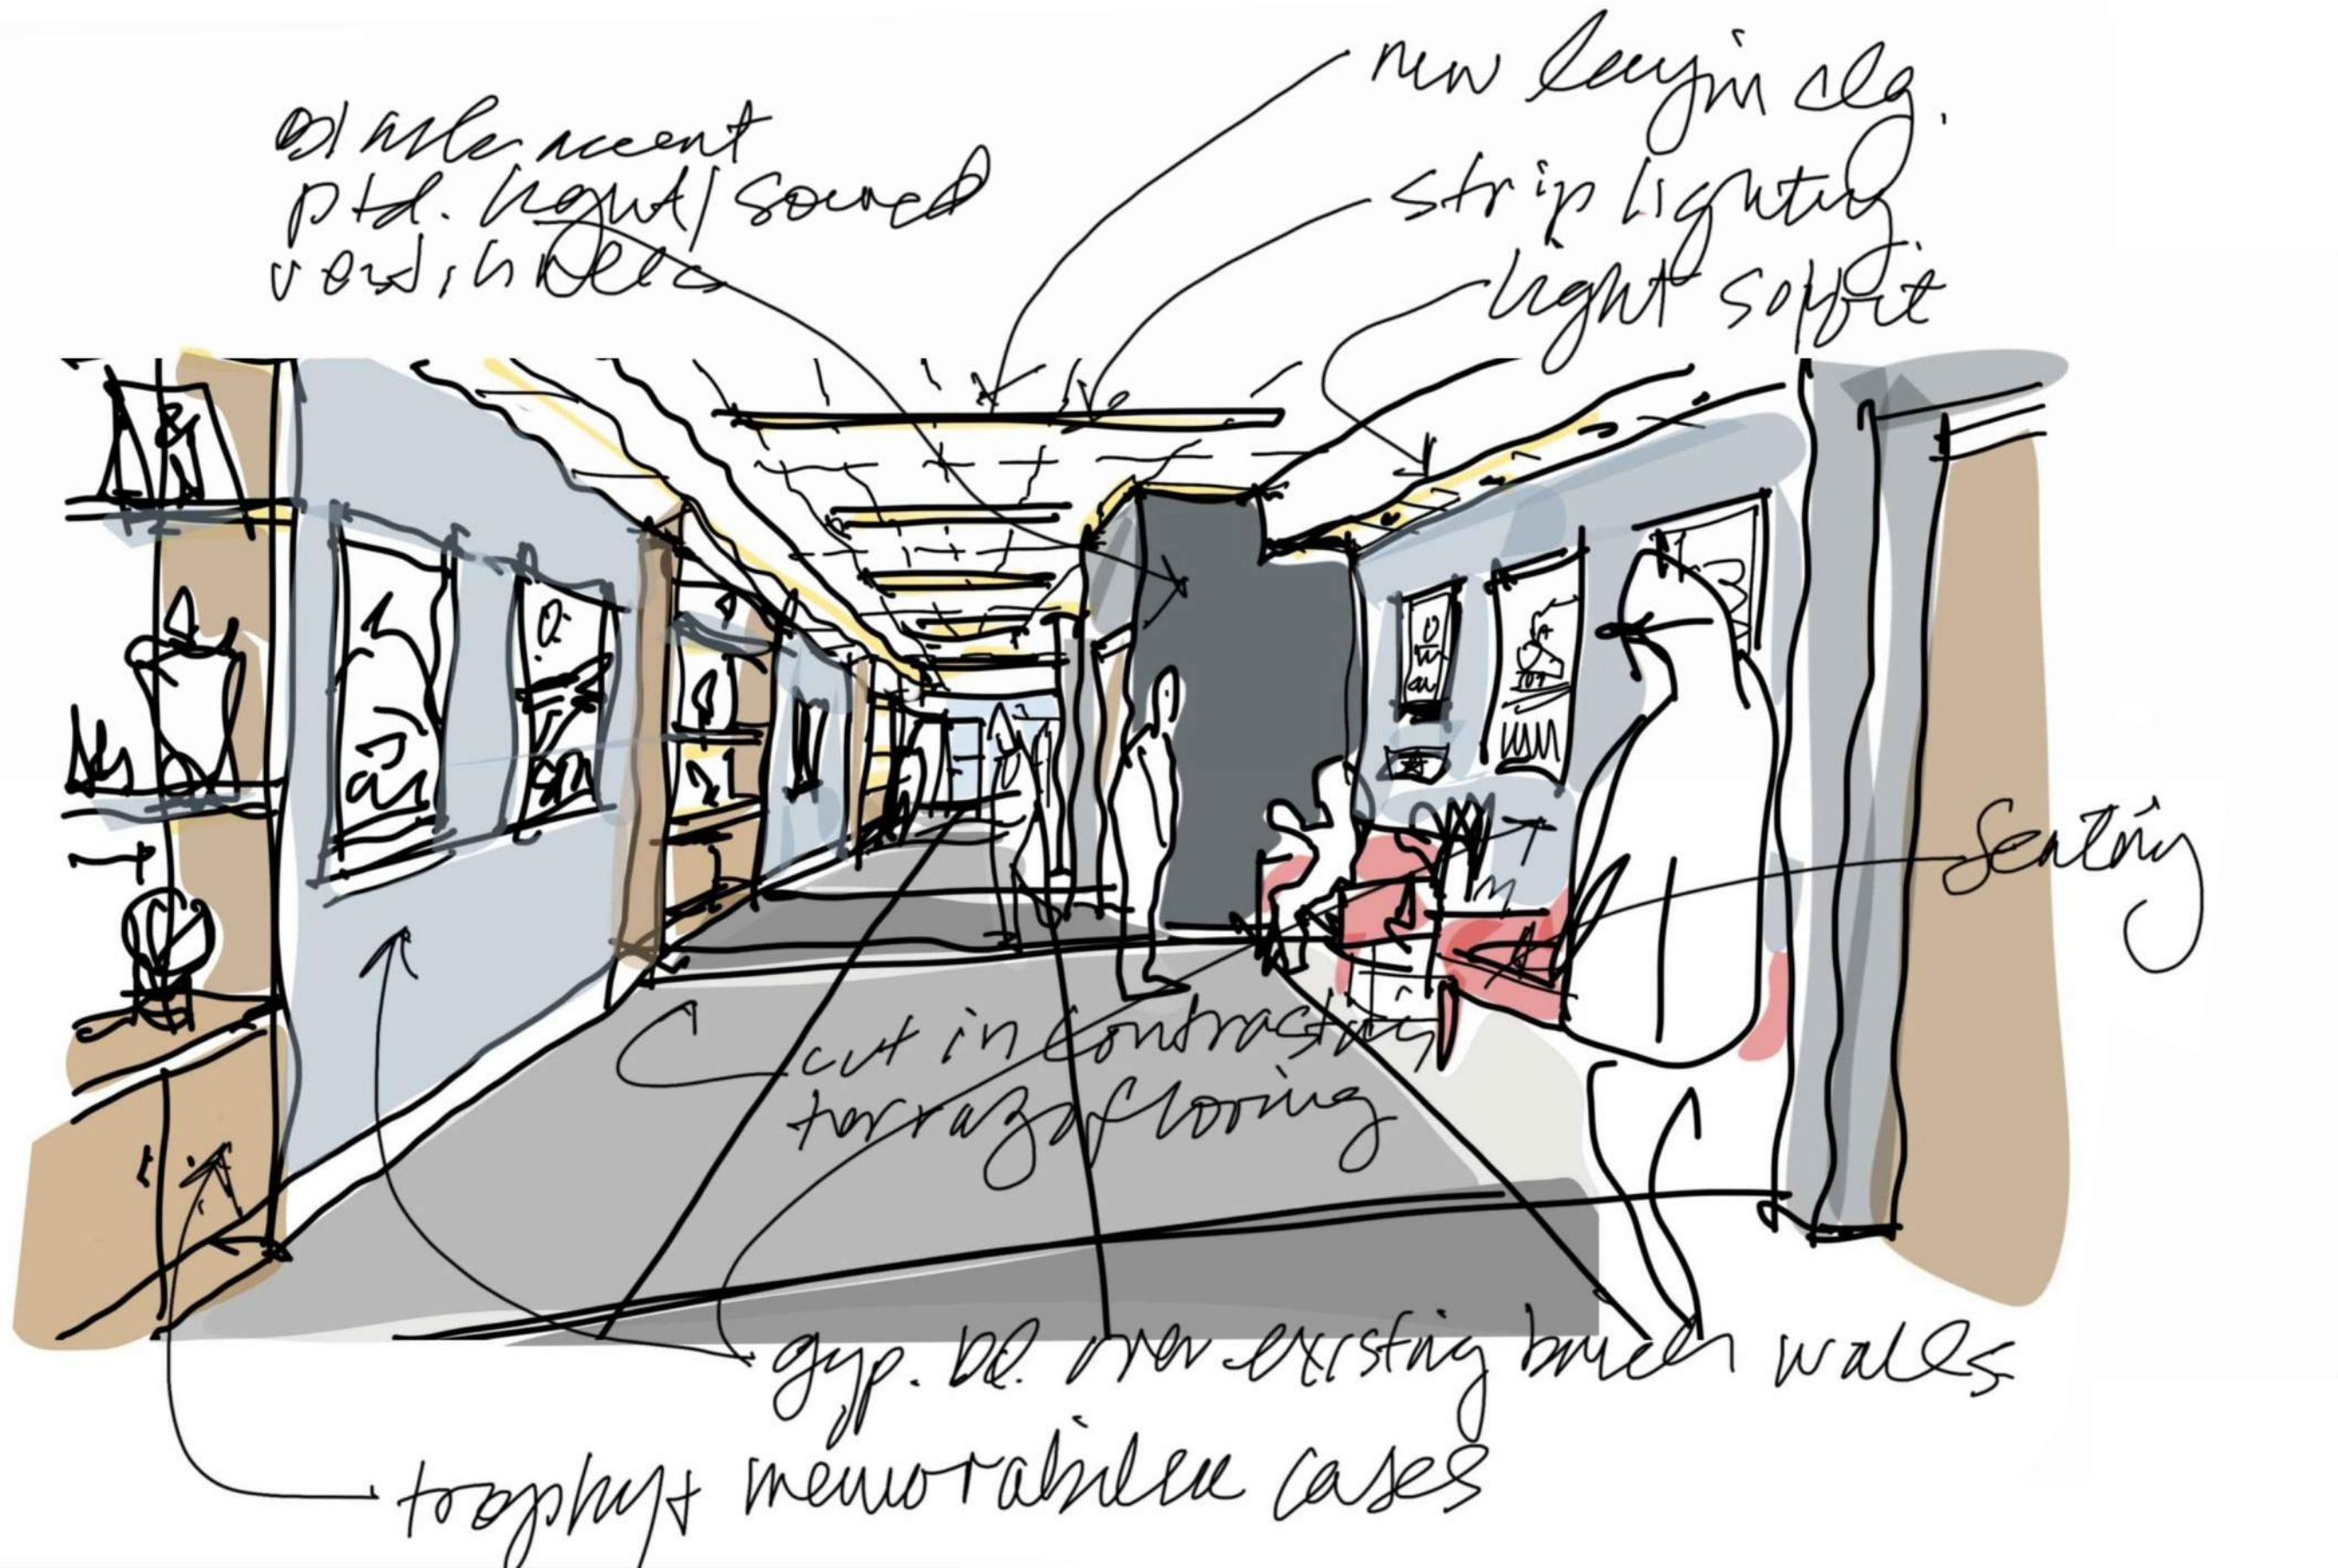 black accent
ptd. light/sound
vestibules
new layin clg.
strip lighting
light soffit
seating
cut in contrasting
terrazzo flooring
gyp. bd. over existing brick walls
trophy + memorabilia cases